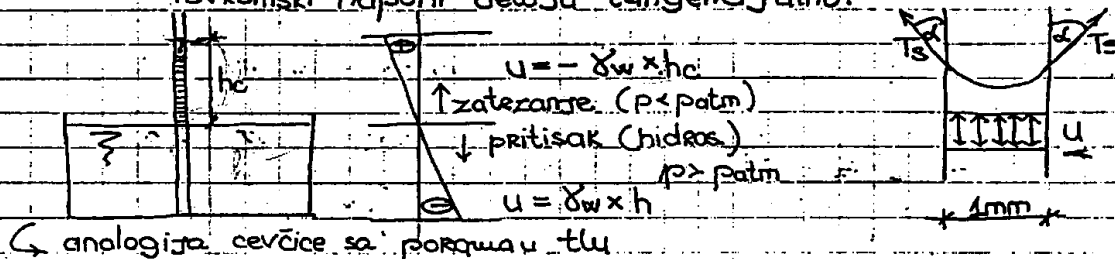 naponi deluju tangencijalno.
hc
⊕
u = - γw × hc
↑ zatezanje (p < patm)
↓ pritisak (hidros.)
p > patm
⊖
u = γw × h
Ts α
α Ts
u
1mm
↳ analogija cevčice sa porama u tlu